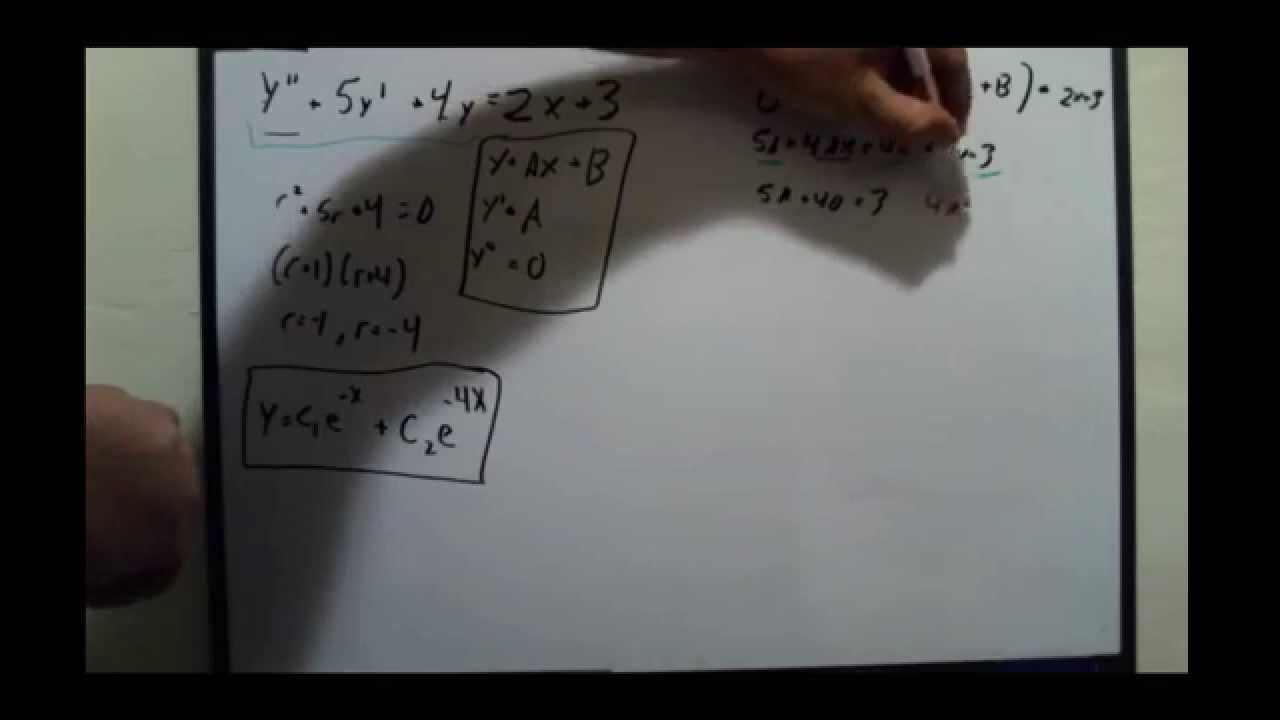 y" + 5y' + 4y = 2x + 3
r² + 5r + 4 = 0
(r+1)(r+4)
r=-1, r=-4
y = c₁e^-x + c₂e^-4x
y = Ax + B
y' = A
y" = 0
+ B) = 2x+3
5A + 4Ax + 3
5A + 4B = 3